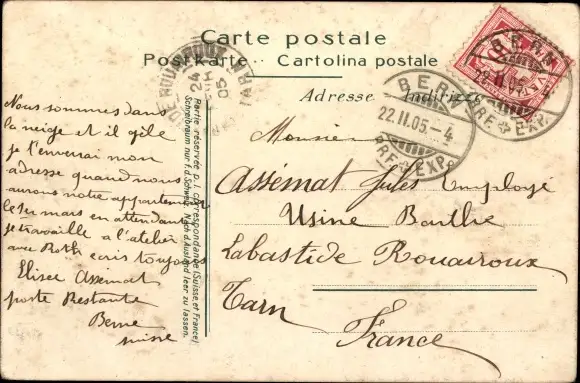 Carte postale
Postkarte · Cartolina postale
Adresse Indirizzo
BERN
22.II.05.-4
BRF. EXP.
BERN
22.II.05
BRF. EXP.
HELVETIA
24
05
TARN
Partie réservée p. l. correspondance (Suisse et France)
Schreibraum nur f. d. Schweiz. Nach d. Ausland leer zu lassen.
Nous sommes dans
la neige et il gèle
je t'enverrai mon
adresse quand nous
aurons notre appartement
le 1er mars en attendant
je travaille a l'atelier
avec Roth ecris toujours
Elisee Assemat
poste Restante
Berne
suisse
Monsieur
Assémat Jules Employé
Usine Barthe
Labastide Rouairoux
Tarn
France